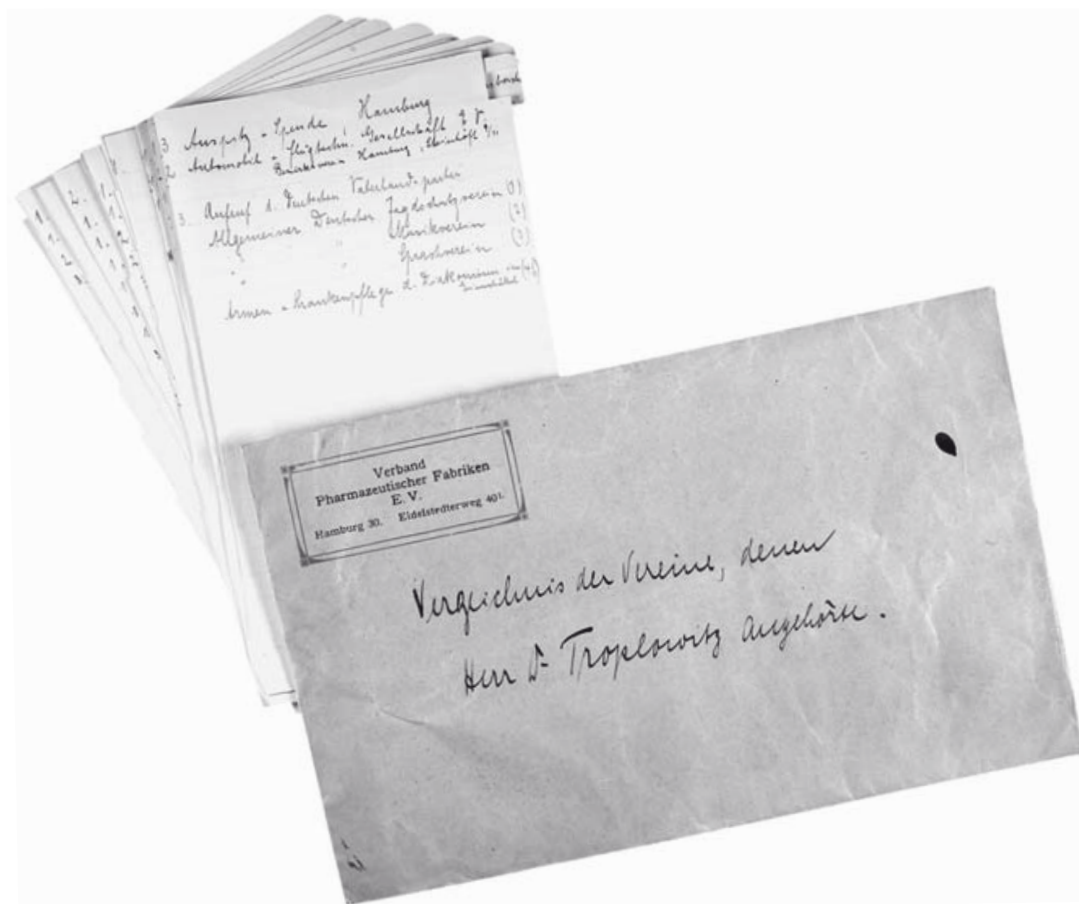 3 Auspitz - Spende Hamburg
2 Automobil - Flugtechn. Gesellschaft E. V.
Hamburg, Steinhöft 9/11
3. Aufruf d. Deutschen Vaterlands-partei
Allgemeiner Deutscher Jagdschutzverein (1)
" " Musikverein (2)
" " Sprachverein (3)
Armen - Krankenpflege d.
Verband
Pharmazeutischer Fabriken
E. V.
Hamburg 30. Eidelstedterweg 40I.
Verzeichnis der Vereine, denen
Herr Dr Troplowitz angehörte.